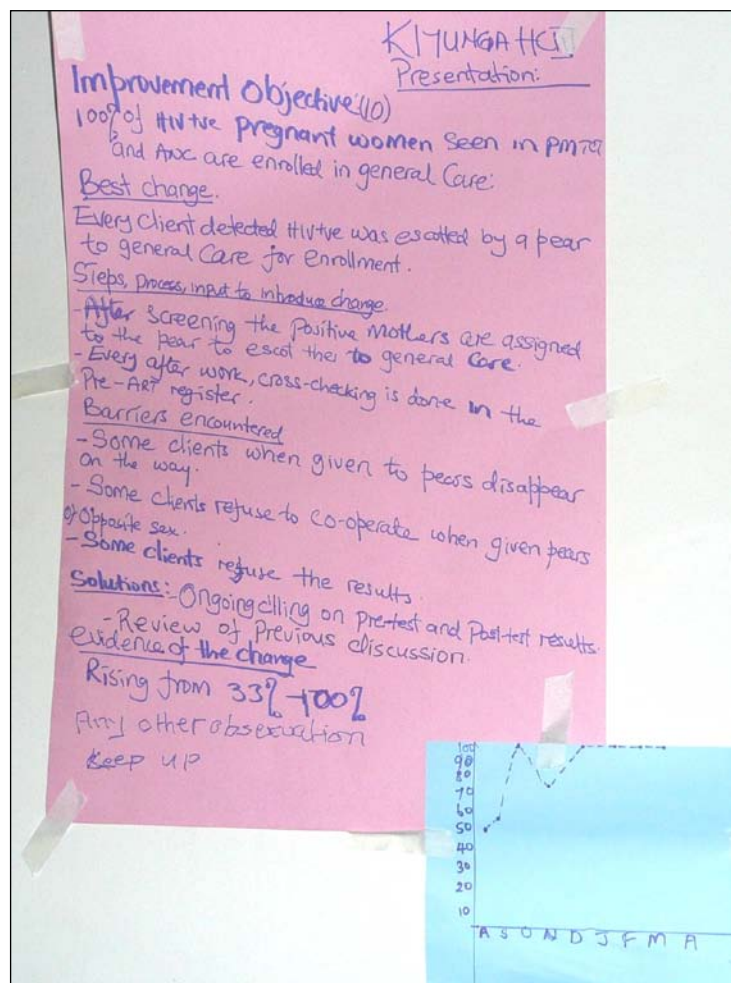 KIYUNGA HCIII
Presentation:
Improvement Objective:(10)
100% of HIV+ve pregnant women seen in PMTCT
and ANC are enrolled in general Care:
Best change.
Every client detected HIV+ve was escotted by a pear
to general Care for enrollment.
Steps, process, input to introduce change.
- After screening the positive mothers are assigned
to the pear to escot them to general care.
- Every after work, cross-checking is done in the
Pre-ART register.
Barriers encountered
- Some clients when given to pears disappear
on the way.
- Some clients refuse to co-operate when given pears
of opposite sex.
- Some clients refuse the results.
Solutions:- Ongoing c/lling on pre-test and Post-test results.
- Review of Previous discussion.
evidence of the change
Rising from 33% - 100%
Any other observation
Keep up
100
90
80
70
60
50
40
30
20
10
A S O N D J F M A